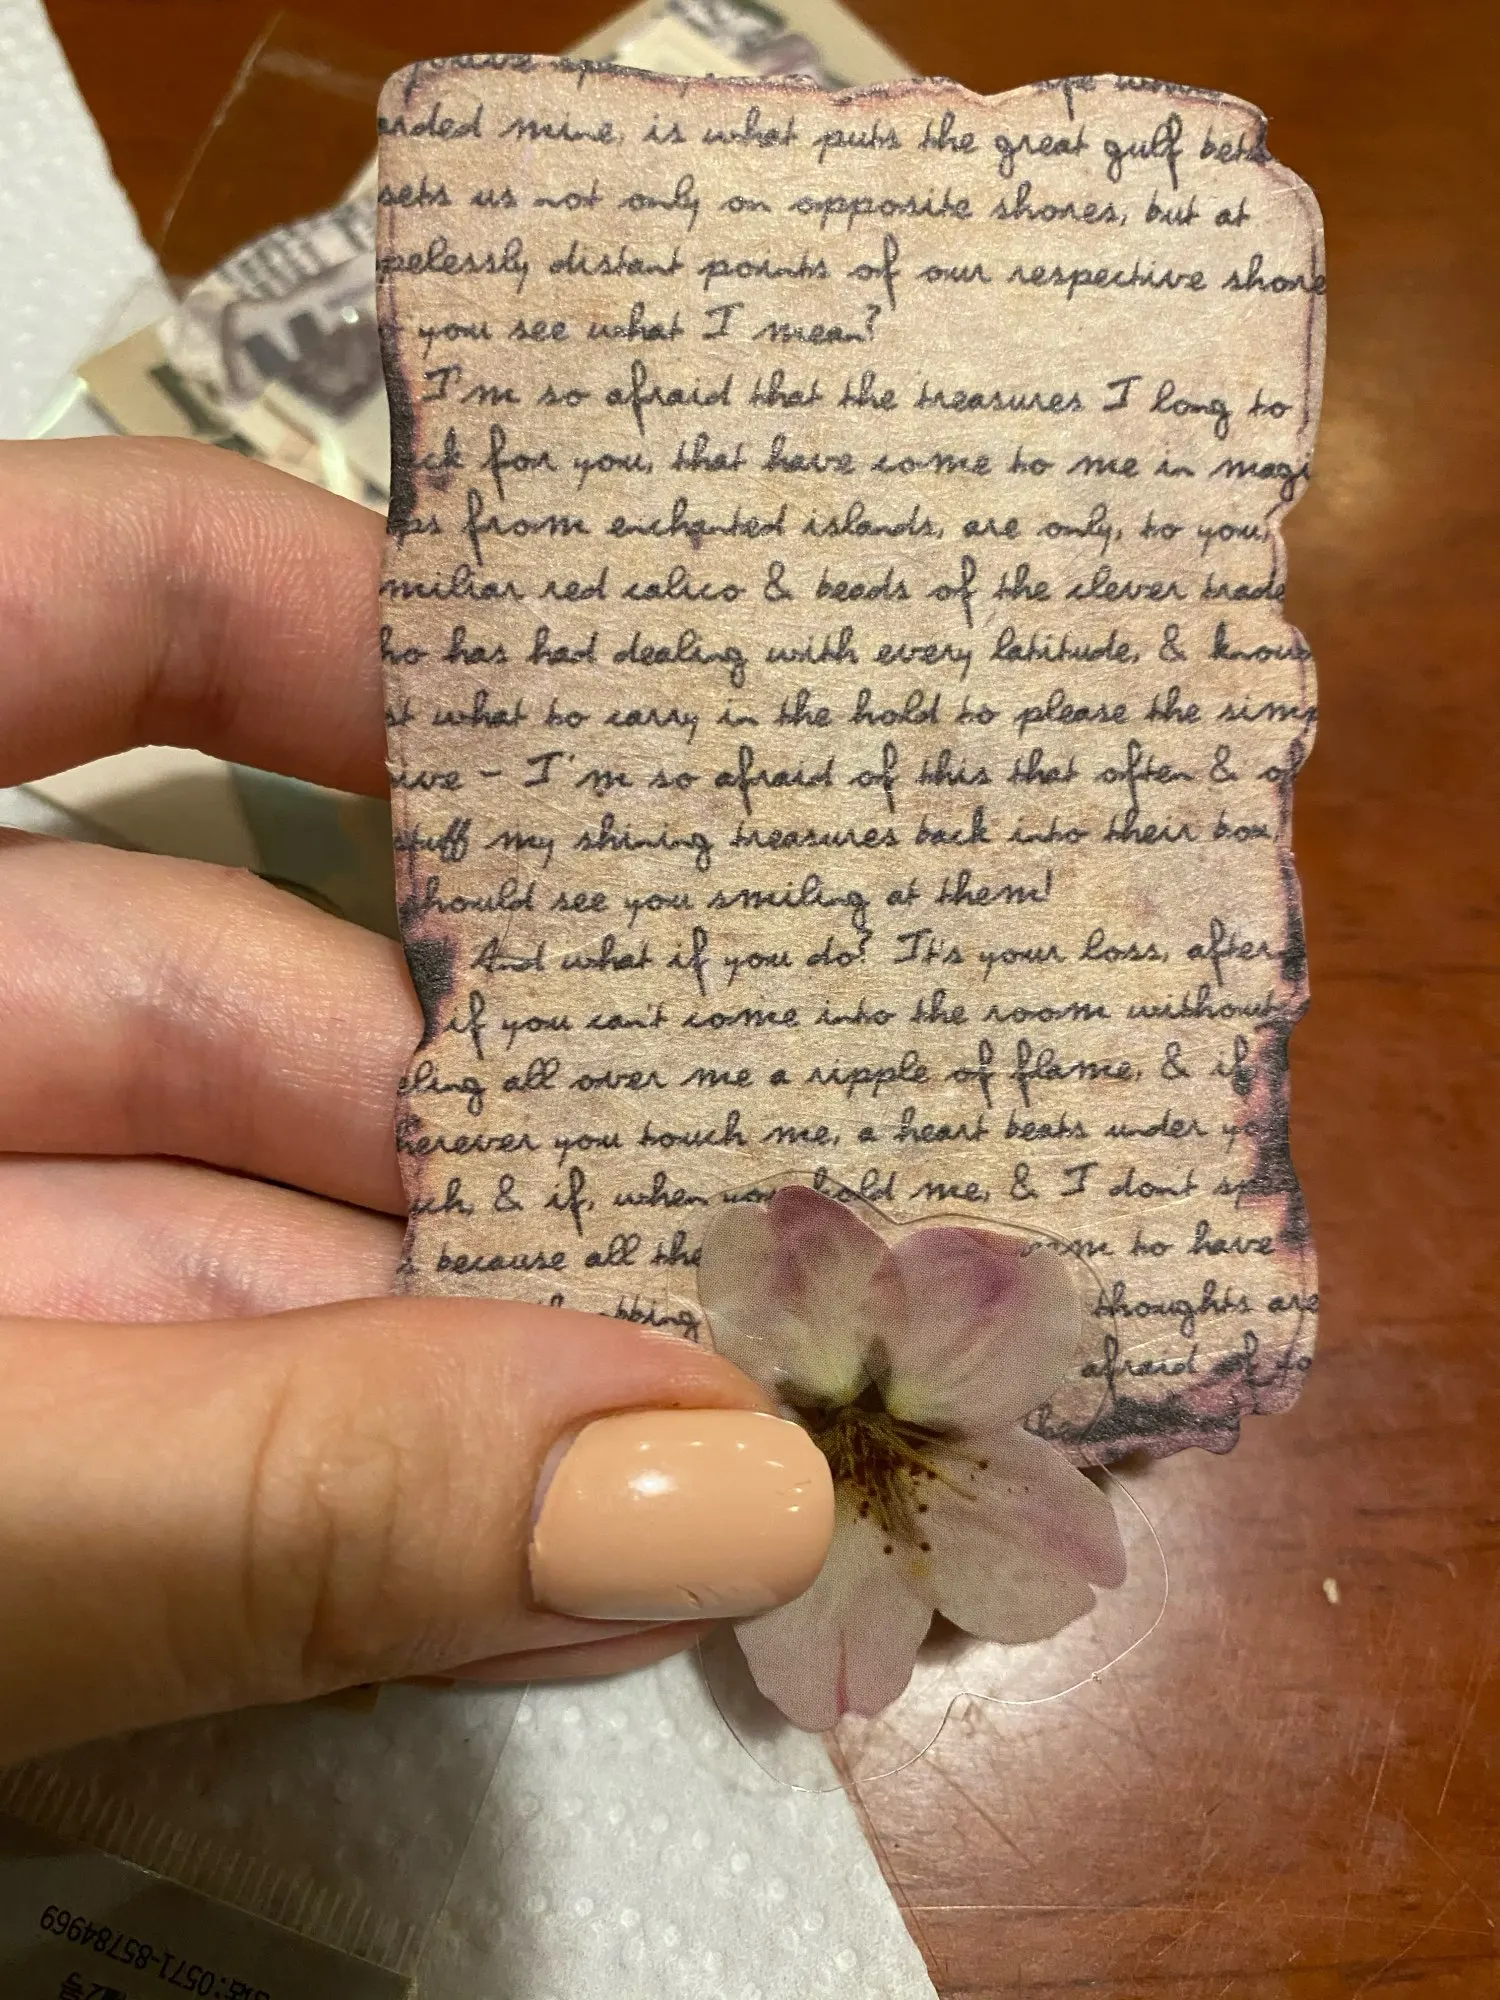 arded mine, is what puts the great gulf betw
sets us not only on opposite shores, but at
pelessly distant points of our respective shore
o you see what I mean?
I'm so afraid that the treasures I long to
ck for you, that have come to me in magi
ps from enchanted islands, are only, to you,
miliar red calico & beads of the clever trade
ho has had dealing with every latitude, & knows
st what to carry in the hold to please the simp
ive - I'm so afraid of this that often & of
stuff my shining treasures back into their box,
should see you smiling at them!
And what if you do? It's your loss, after
if you can't come into the room without
eling all over me a ripple of flame, & if
herever you touch me, a heart beats under yo
uch, & if, when you hold me, & I dont sp
s because all the me to have
bbing thoughts are
afraid of
0571-85784969